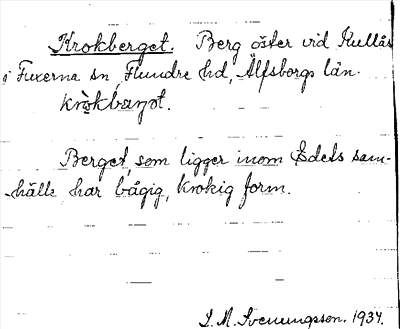 Krokberget. Berg öster vid Kullås
i Fuxerna sn, Flundre hd, Älfsborgs län.
Berget, som ligger inom Edets sam-
hälle har bågig, krokig form.
S. M. Svenungsson. 1934.